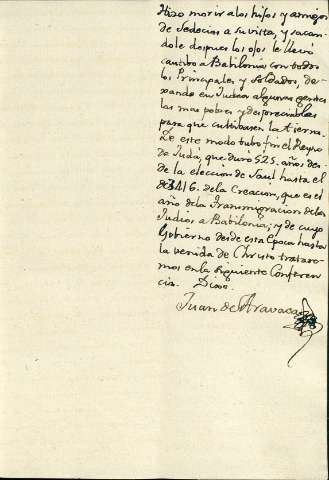 Hizo morir a los hijos y amigos
de Sedecias a su vista, y sacan-
dole despues los ojos le llevó
cautivo a Babilonia con todos
los Principales y Soldados, de-
xando en Judea algunas gentes
las mas pobres y despreciables
para que cultivasen la tierra.
De este modo tubo fin el Reyno
de Judá, que duró 525. años des-
de la eleccion de Saul hasta el
de 3416. de la Creacion, que es el
año de la Transmigracion de los
Judios a Babilonia; y de cuyo
Gobierno desde esta Epoca hasta
la venida de Christo tratare-
mos en la siguiente Conferen-
cia. Dixe.
Juan de Aravaca